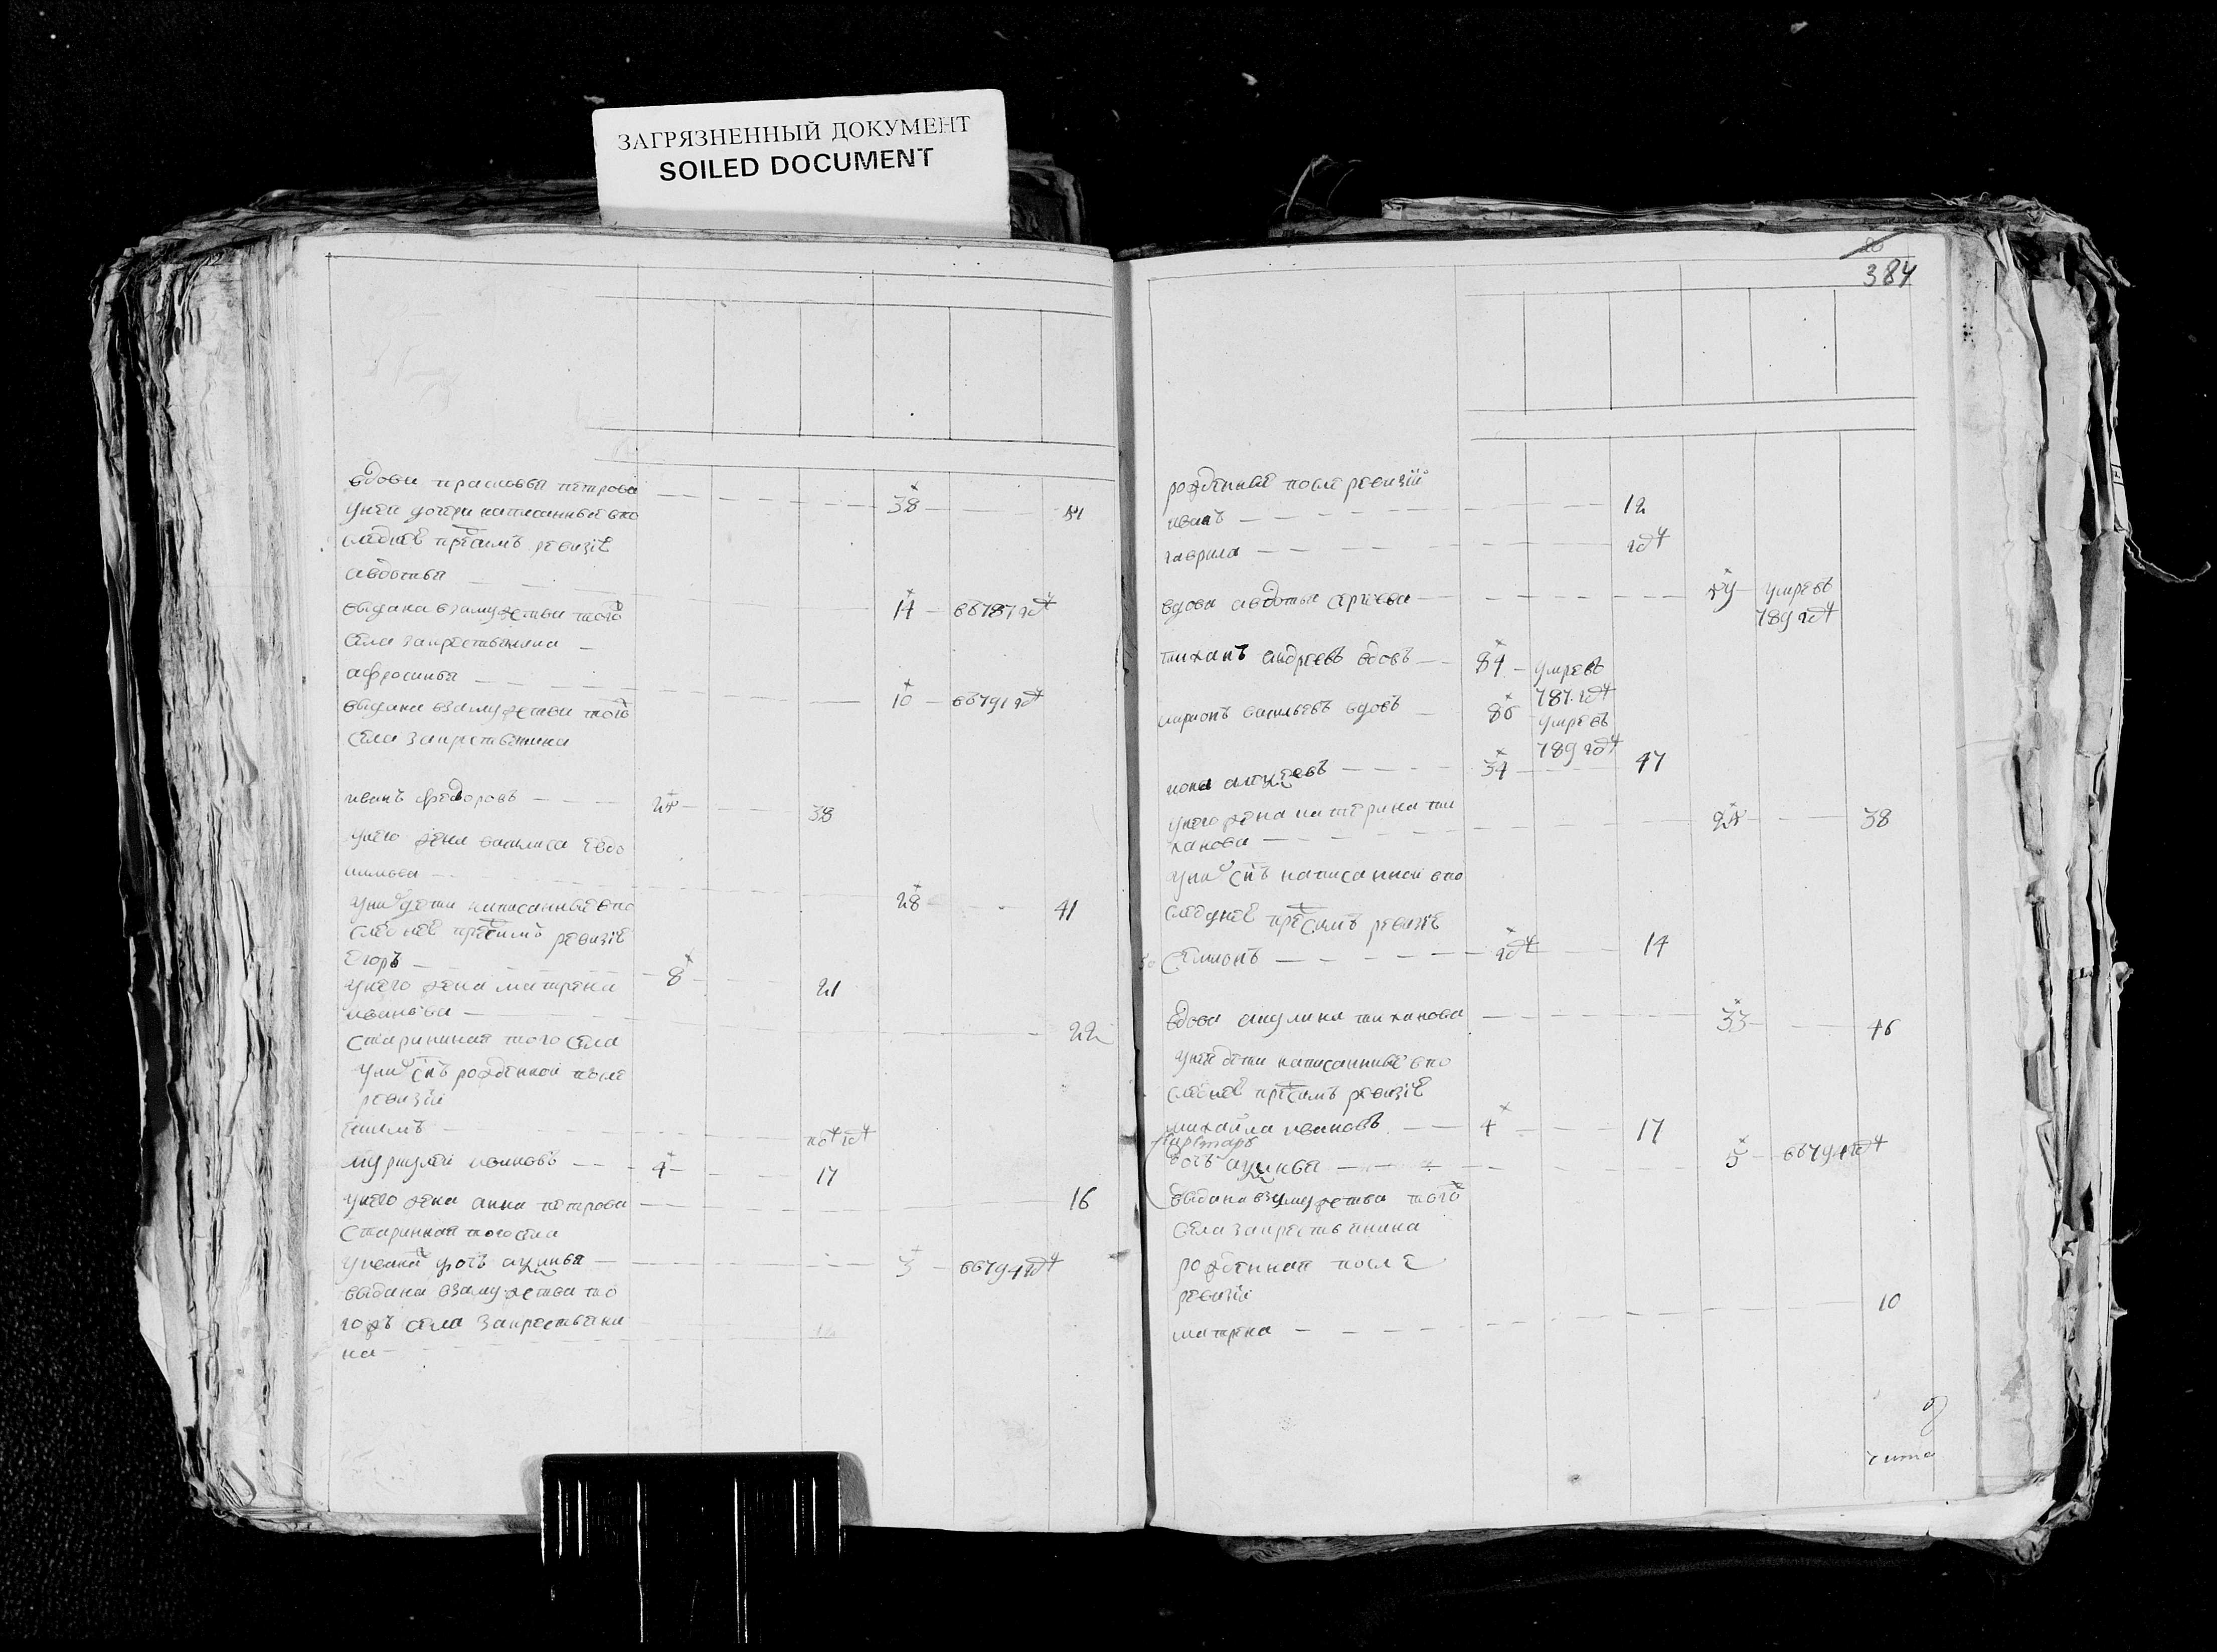 ЗАГРЯЗНЕННЫЙ ДОКУМЕНТ
SOILED DOCUMENT
вдова прасковья петрова 38 51
унеи дочери написанныя впо
следнеи пред симъ ревизiе
авдотья
выдана взамужства того 14 въ 787 году
села закрестьянина
афросинья
выдана взамужства того 10 въ 791 году
села закрестьянина
иванъ федоровъ 25 38
унего жена василиса евдо
кимова 28 41
уних дети написанные впо
следнеи пред симъ ревизiе
егоръ 8 21
унего жена матрена
иванова 22
старинная того села
уних снъ рожденной после
ревизiи
екимъ полгода
ивановъ 4 17
унего жена анна петрова 16
старинная того села
уивана дочь акулина 3 въ 794 году
выдана взамужства то
гожъ села закрестьяни
на
384
рожденные после ревизiи
иванъ 12
гаврила год
вдова авдотья сергеева 59 умре въ
789 году
тиханъ андреевъ вдовъ 84 умре въ
787 году
ларионъ васильевъ вдовъ 86 умре въ
789 году
34 47
унего жена катерина ти
ханова 25 38
уних снъ написанной впо
следнеи пред симъ ревизiе
семионъ год 14
вдова акулина тиханова 33 46
унеи дети написанные впо
следнеи пред симъ ревизiе
михаила ивановъ 4 17
дочь акулина 5 въ 794 году
выдана взамужства того
села закрестьянина
рожденная после
ревизiи
матрена 10